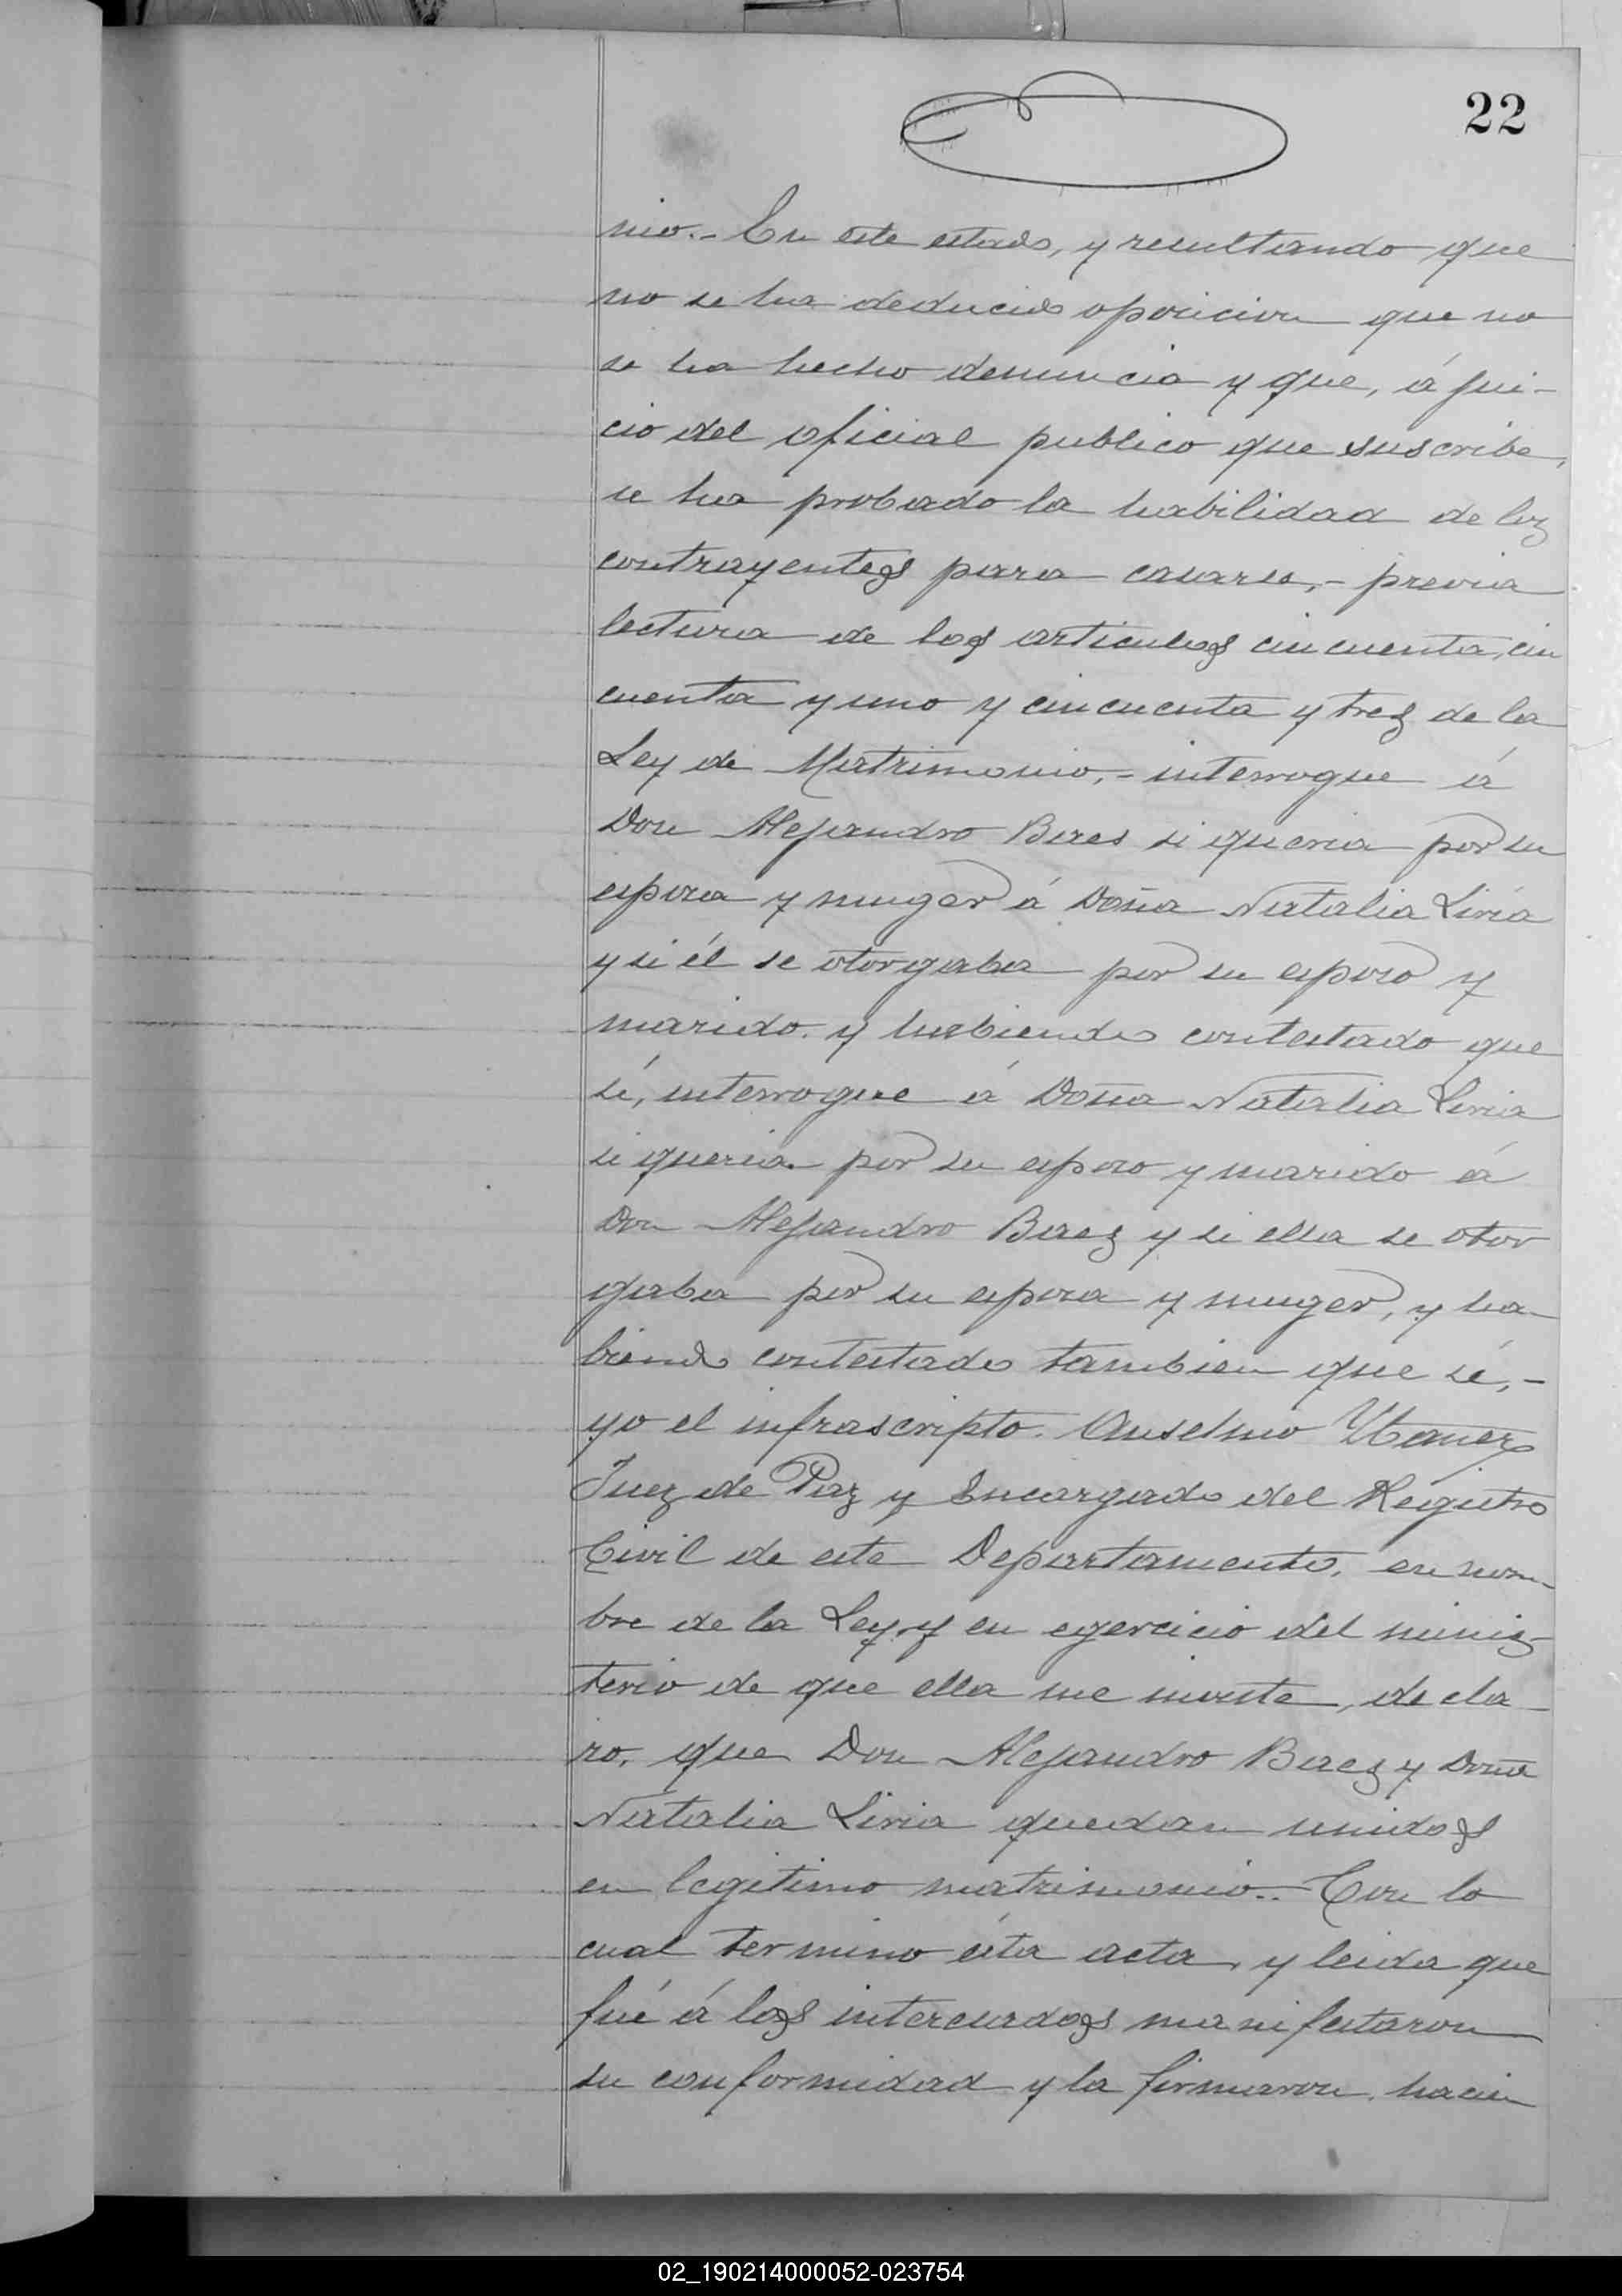 22
nio.- En este estado, y resultando que
no se ha deducido oposicion que no
se ha hecho denuncia y que, á jui-
cio del oficial publico que suscribe,
se ha probado la habilidad de los
contrayentes para casarse,- previa
lectura de los articulos cincuenta, cin
cuenta y uno y cincuenta y tres de la
Ley de Matrimonio,- interrogue á
Don Alejandro Baes si queria por su
esposa y muger á Doña Natalia Liria
y si él se otorgaba por su esposo y
marido. y habiendo contestado que
sí, interrogue á Doña Natalia Liria
si queria por su esposo y marido á
Don Alejandro Baez y si ella se otor
gaba por su esposa y muger, y ha-
biendo contestado tambien que sí,-
yo el infrascripto. Anselmo
Juez de Paz y Encargado del Registro
Civil de este Departamento, en nom-
bre de la Ley, y en egercicio del minis-
terio de que ella me inviste, decla-
ro, que Don Alejandro Baez y Doña
Natalia Liria quedan unidos
en legitimo matrimonio.. Con lo
cual termino ésta acta, y leida que
fué á los interesados manifestaron
su conformidad y la firmaron, hacien
02_190214000052-023754